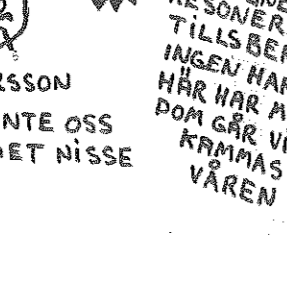 RSSON
NTE OSS
DET NISSE
RESONER
TILLS BE
INGEN HA
HÄR HAR M
DOM GÅR VI
KAMMAS
VÅREN